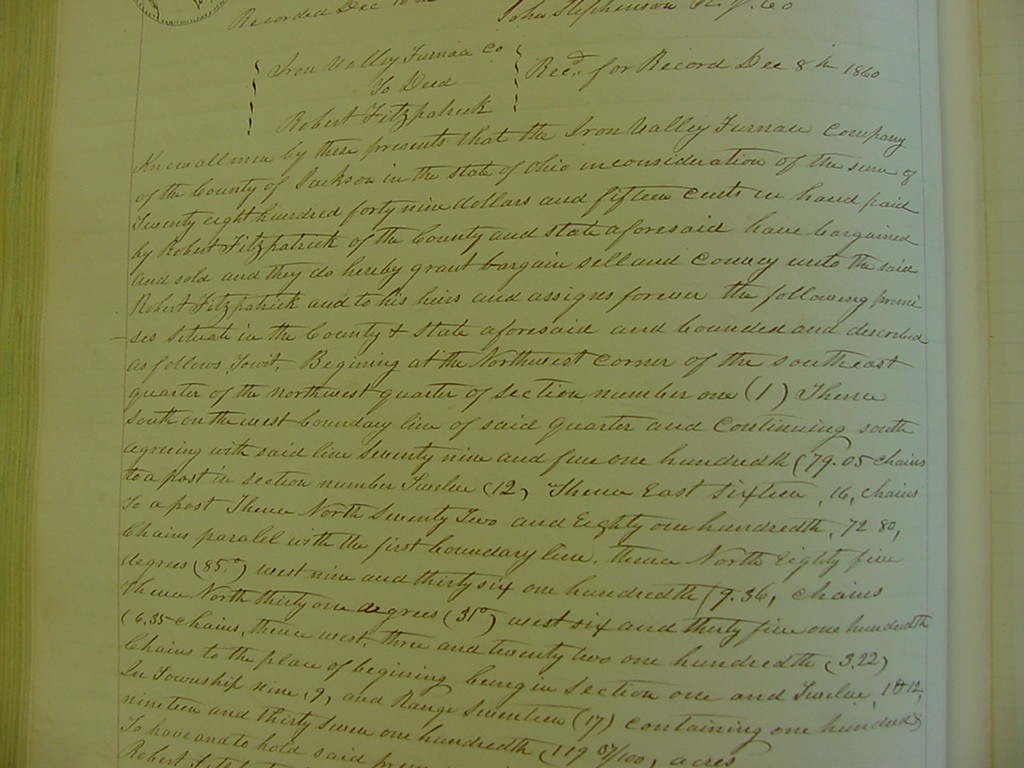 Recorded Dec 10th
John Stephenson R. J. Co
Iron Valley Furnace Co
To Deed
Robert Fitzpatrick
Recd. for Record Dec 8th 1860
Know all men by these presents that the Iron Valley Furnace Company
of the County of Jackson in the state of Ohio in consideration of the sum of
Twenty eight hundred forty nine dollars and fifteen cents in hand paid
by Robert Fitzpatrick of the County and state aforesaid have bargained
and sold and they do hereby grant bargain sell and convey unto the said
Robert Fitzpatrick and to his heirs and assigns forever the following premi
-ses situate in the County & State aforesaid and bounded and described
as follows, Towit, Begining at the Northwest corner of the southeast
quarter of the northwest quarter of section number one (1) Thence
South on the west boundary line of said quarter and Continuing south
agreeing with said line seventy nine and five one hundredth (79.05 chains
to a post in section number Twelve (12, Thence East sixteen, 16, chains
To a post Thence North Seventy Two and Eighty one hundredth, 72 80,
Chains paralel with the first boundary line, thence North Eighty five
degrees (85°) west nine and thirty six one hundredth (9.36, chains
Thence North thirty one degrees (31°) west six and thirty five one hundredth
(6.35 chains, thence west, three and twenty two one hundredth (3.22)
Chains to the place of begining being in Section one and Twelve, 1 & 12,
In Township nine, 9, and Range Seventeen (17) containing one hundred &
nineteen and thirty seven one hundredth (119 37/100, acres
To have and to hold said
Robert